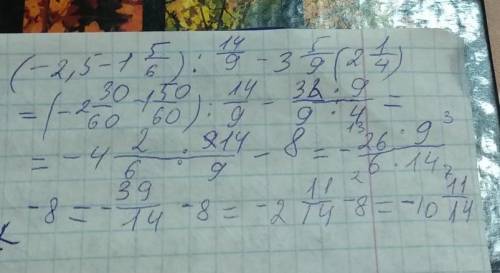 (-2,5-1 5/6) : 14/9 - 3 5/9 (2 1/4)
= (-2 30/60 - 1 50/60) : 14/9 - 32 · 9 / 9 · 4 =
= -4 2/6 : 14/9 - 8 = - 26 13 · 9 3 / 6 2 · 14 7
-8 = - 39/14 - 8 = -2 11/14 - 8 = -10 11/14